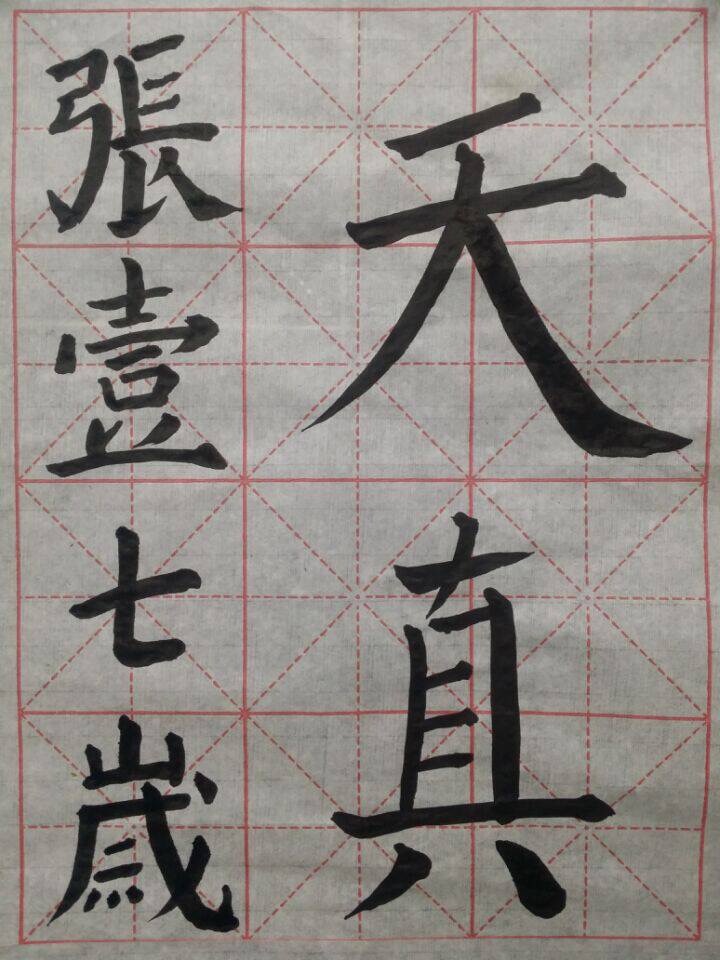 天真
張壹七歲